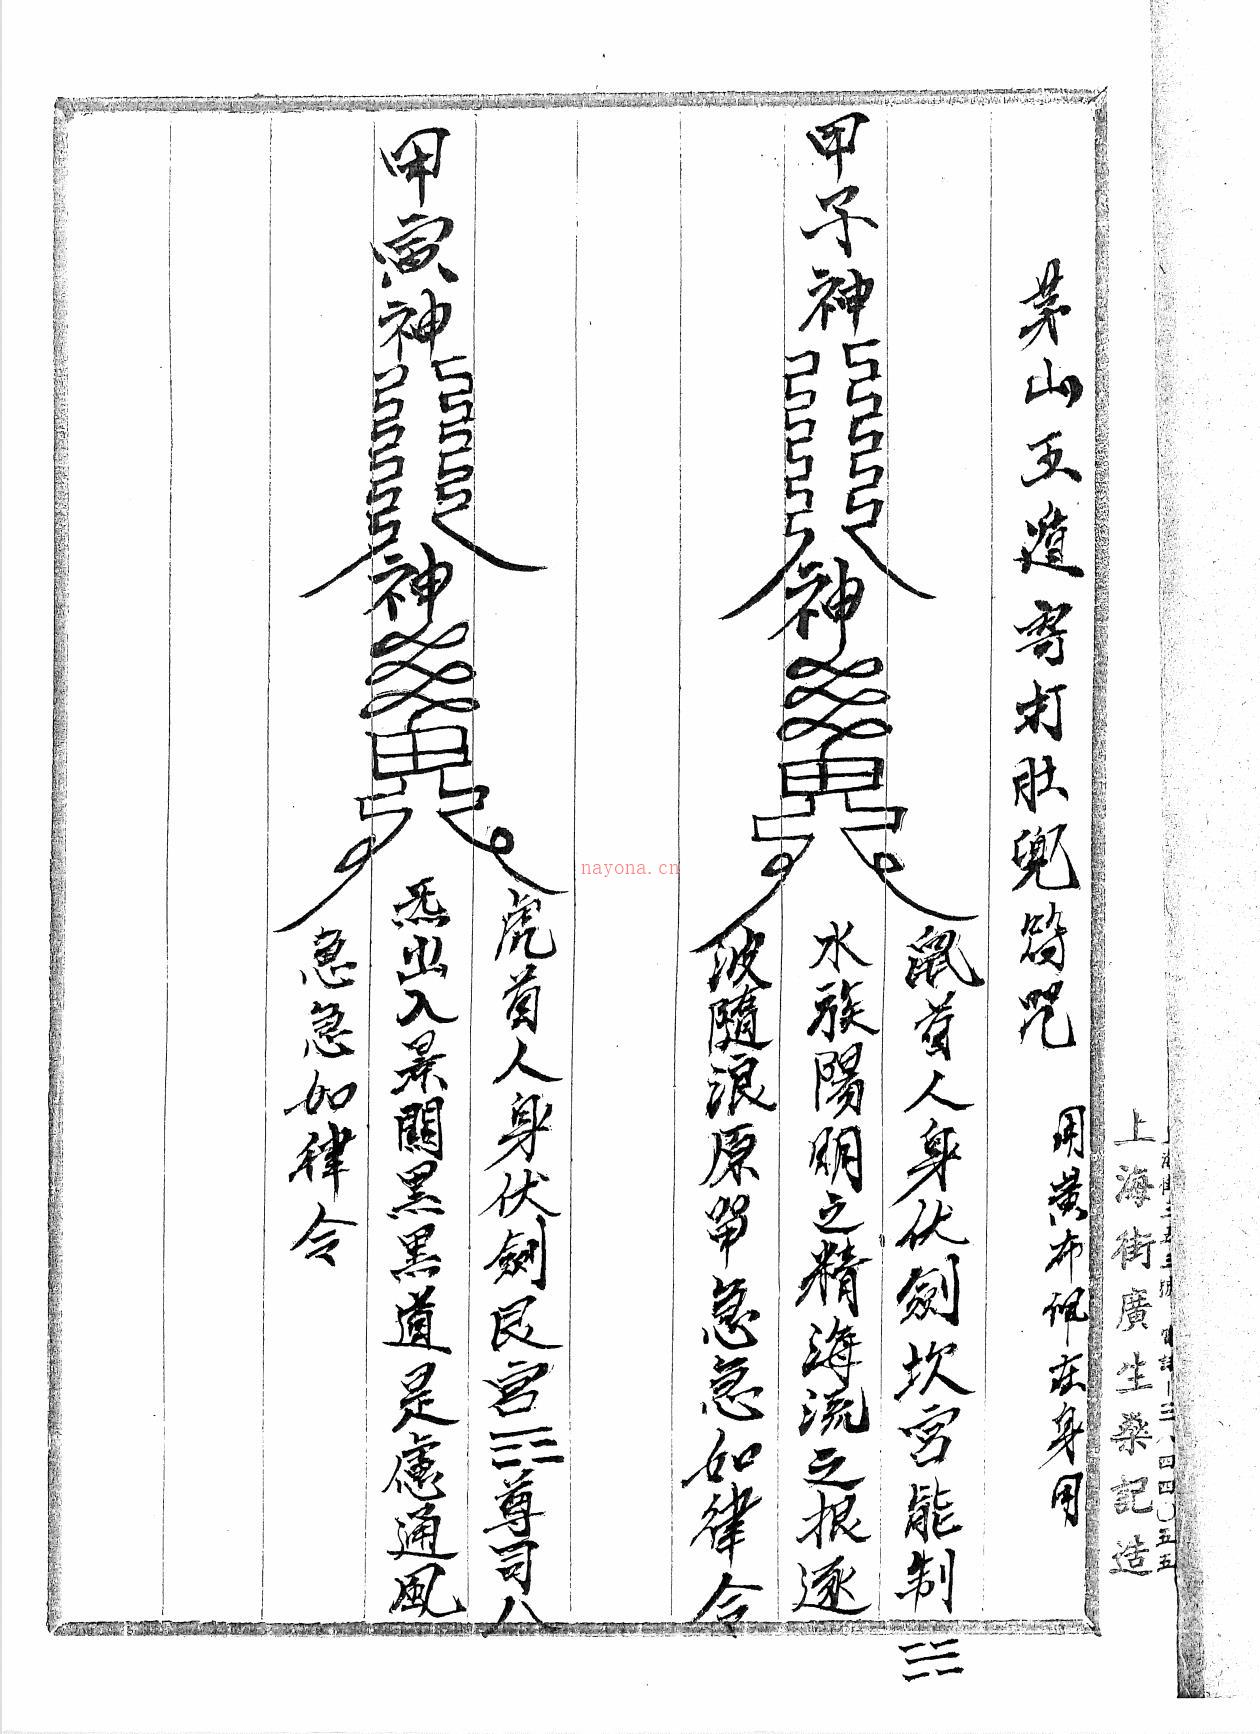 茅山玉遁寄打肚兜符咒 用黃布佩在身用
甲子神
神
鼠首人身伏劍坎宮能制
水族陽明之精海流之根逐
波隨浪原罡急急如律令
甲寅神
神
虎首人身伏劍艮宮尊司八
炁出入景關黑黑道是處通風
急急如律令
上海街廣生藥記造
nayona.cn